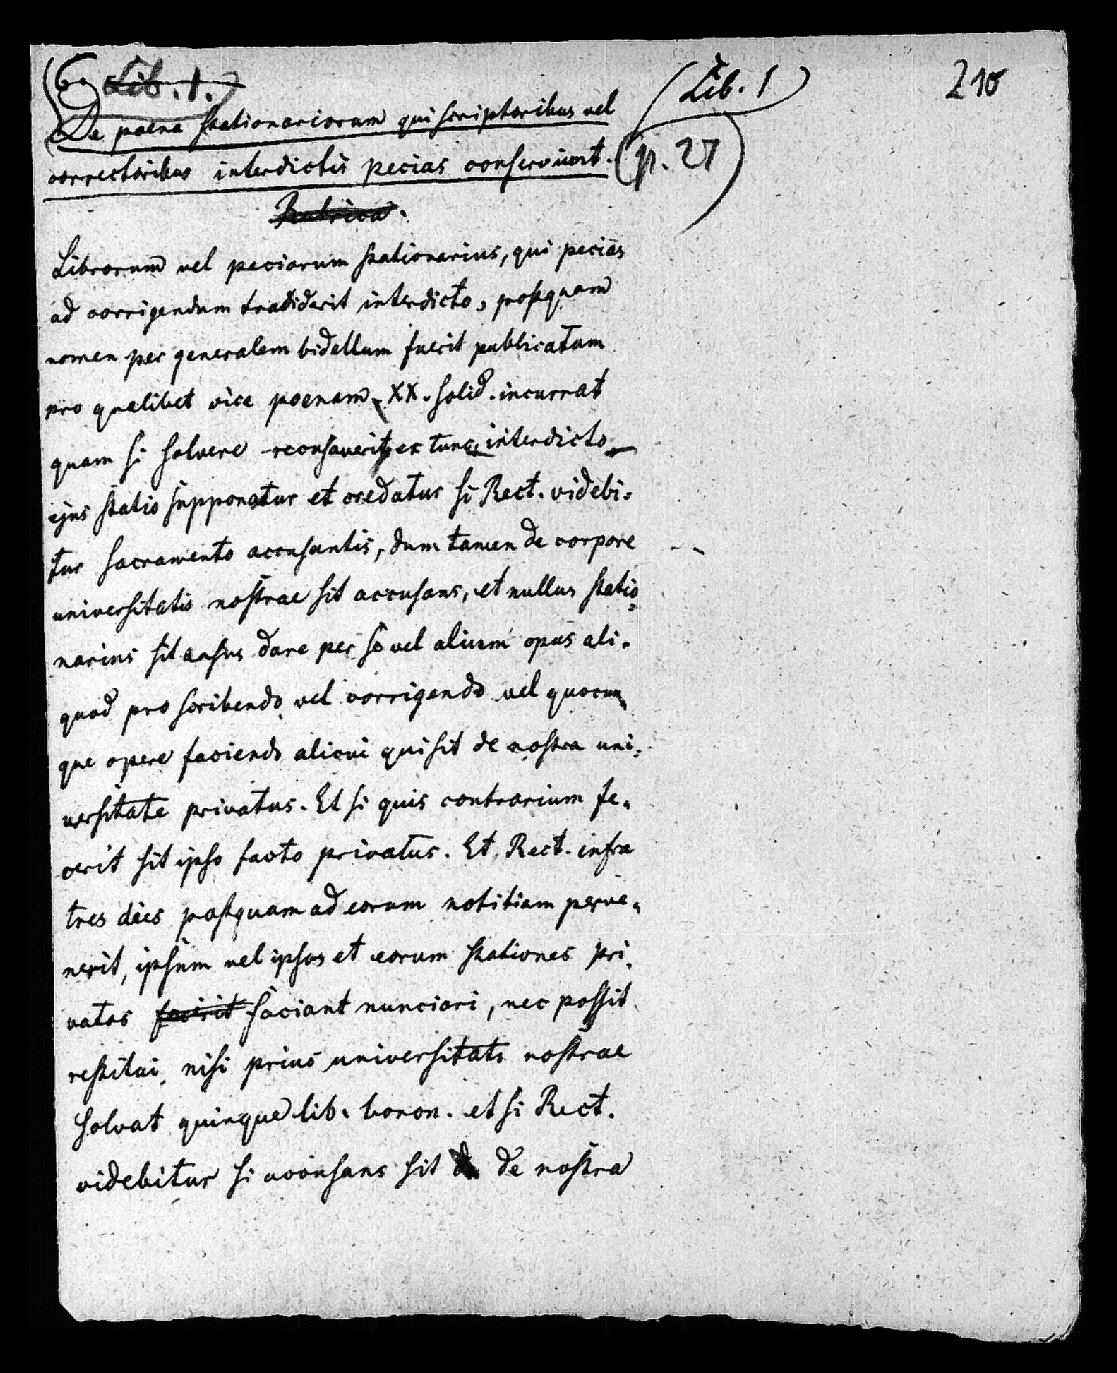 (Lib. 1.)
(Lib. 1)
210
De poena stationariorum qui scriptoribus vel
correctoribus interdictis pecias conserviunt.
(p. 27)
Rubrica.
Librorum vel peciarum stationarius, qui pecias
ad corrigendum tradiderit interdicto, postquam
nomen per generalem bidellum fuerit publicatum
pro qualibet vice poenam XX. solid. incurrat
quam si solvere recusaverit, ex tunc interdicto
ejus statio supponatur et credatur si Rect. videbi-
tur sacramento accusantis, dum tamen de corpore
universitatis nostrae sit accusans, et nullus statio-
narius sit ausus dare per se vel alium opus ali-
quod pro scribendo vel corrigendo vel quocun-
que opere faciendo alicui qui sit de nostra uni-
versitate privatus. Et si quis contrarium fe-
cerit sit ipso facto privatus. Et Rect. infra
tres dies postquam ad eorum notitiam perve-
nerit, ipsum vel ipsos et eorum stationes pri-
vatos fecerit faciant nunciari, nec possit
restitui, nisi prius universitati nostrae
solvat quinque lib. bonon. et si Rect.
videbitur si accusans sit de nostra